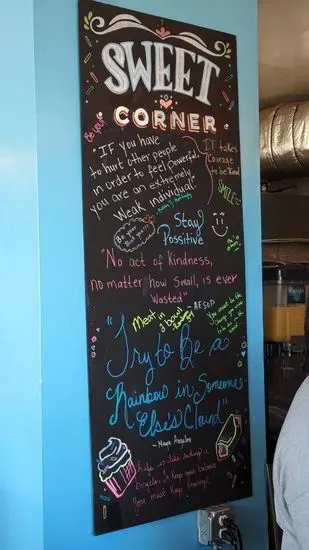 SWEET
CORNER
Be you!
"IF you have
to hurt other people
in order to feel powerful
you are an extremely
Weak individual."
IT takes
Courage
to be kind
SMILE
Be you
Stay
Possitive
"No act of Kindness,
no matter how Small, is ever
Wasted"
- AESOP
Meat in
a bowl
You must be the
Change you
"Try to Be a
Rainbow in Someone
Else's Clound"
- Maya Angelou
Life is like riding a
bicycle. To Keep your balance
You must Keep moving!